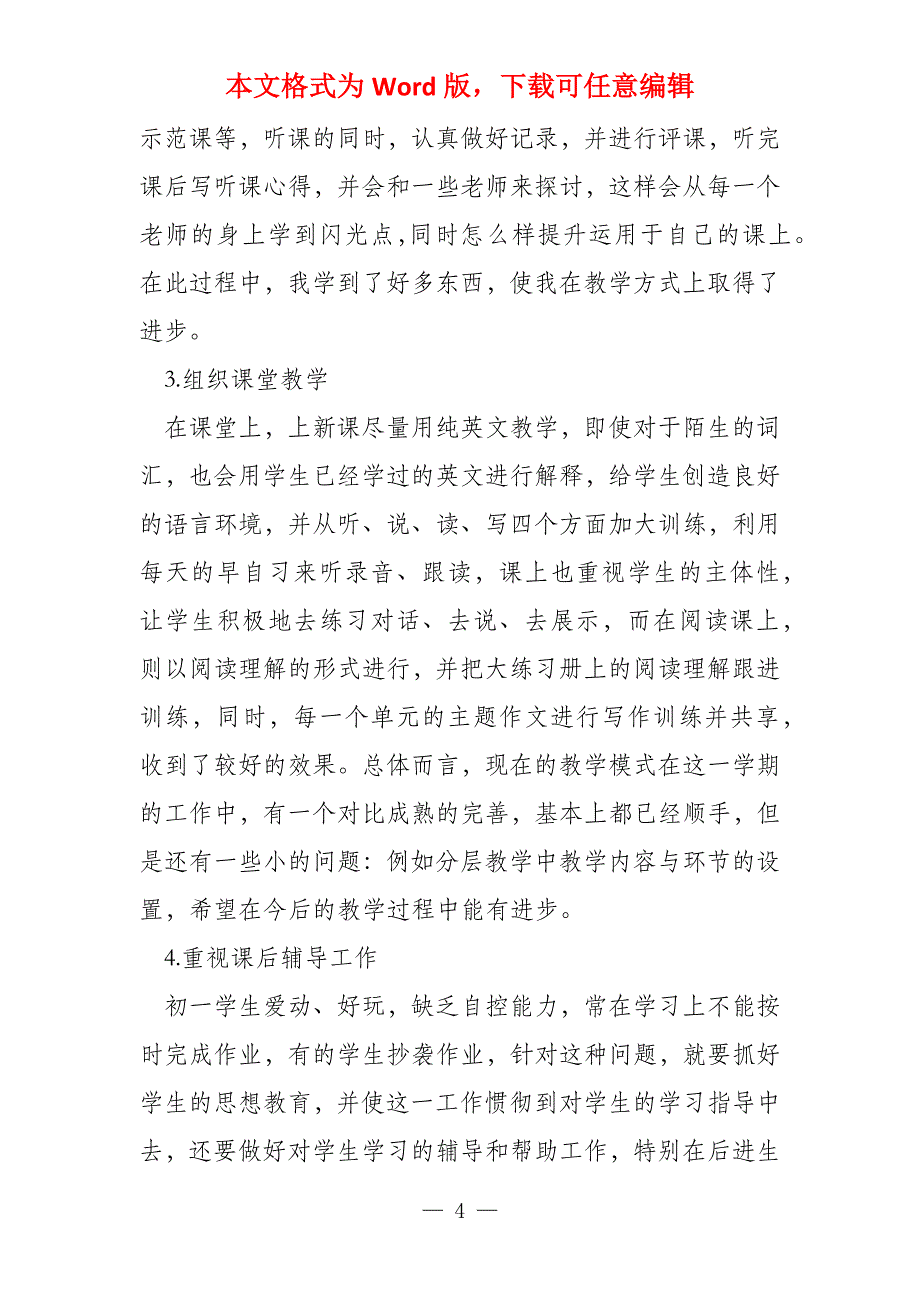 本文格式为 Word 版，下载可任意编辑
示范课等，听课的同时，认真做好记录，并进行评课，听完
课后写听课心得，并会和一些老师来探讨，这样会从每一个
老师的身上学到闪光点,同时怎么样提升运用于自己的课上。
在此过程中，我学到了好多东西，使我在教学方式上取得了
进步。
3.组织课堂教学
在课堂上，上新课尽量用纯英文教学，即使对于陌生的词
汇，也会用学生已经学过的英文进行解释，给学生创造良好
的语言环境，并从听、说、读、写四个方面加大训练，利用
每天的早自习来听录音、跟读，课上也重视学生的主体性，
让学生积极地去练习对话、去说、去展示，而在阅读课上，
则以阅读理解的形式进行，并把大练习册上的阅读理解跟进
训练，同时，每一个单元的主题作文进行写作训练并共享，
收到了较好的效果。总体而言，现在的教学模式在这一学期
的工作中，有一个对比成熟的完善，基本上都已经顺手，但
是还有一些小的问题：例如分层教学中教学内容与环节的设
置，希望在今后的教学过程中能有进步。
4.重视课后辅导工作
初一学生爱动、好玩，缺乏自控能力，常在学习上不能按
时完成作业，有的学生抄袭作业，针对这种问题，就要抓好
学生的思想教育，并使这一工作惯彻到对学生的学习指导中
去，还要做好对学生学习的辅导和帮助工作，特别在后进生
— 4 —